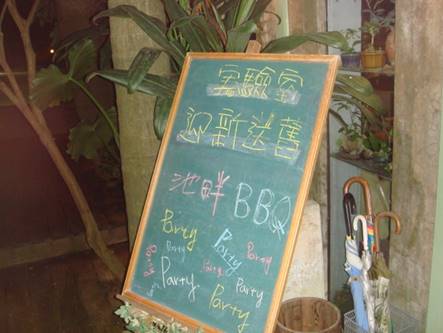 實驗室
迎新送舊
池畔 BBQ
Party
Party
Party
Party
Party
Party
Party
Party